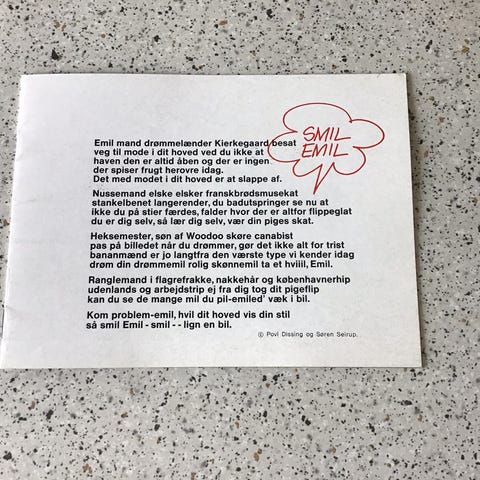 SMIL
EMIL
Emil mand drømmelænder Kierkegaard besat
veg til mode i dit hoved ved du ikke at
haven den er altid åben og der er ingen
der spiser frugt herovre idag.
Det med modet i dit hoved er at slappe af.
Nussemand elske elsker franskbrødsmusekat
stankelbenet langerender, du badutspringer se nu at
ikke du på stier færdes, falder hvor der er altfor flippeglat
du er dig selv, så lær dig selv, vær din piges skat.
Heksemester, søn af Woodoo skøre canabist
pas på billedet når du drømmer, gør det ikke alt for trist
bananmænd er jo langtfra den værste type vi kender idag
drøm din drømmemil rolig skønnemil ta et hviiil, Emil.
Ranglemand i flagrefrakke, nakkehår og københavnerhip
udenlands og arbejdstrip ej fra dig tog dit pigeflip
kan du se de mange mil du pil-emiled' væk i bil.
Kom problem-emil, hvil dit hoved vis din stil
så smil Emil - smil - - lign en bil.
© Povl Dissing og Søren Seirup.